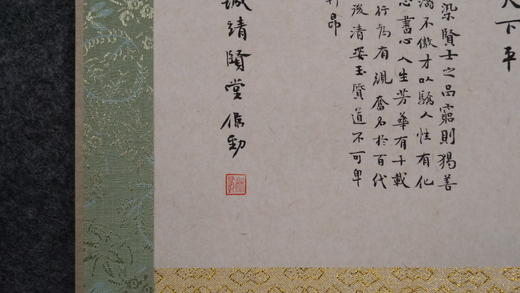 下平
染賢士之品窮則獨善
不傲才以驕人性有化
心人生芳華有十載
行為有規奮名於百代
後清玉質道不可卑
昂
靖賢堂侯勁